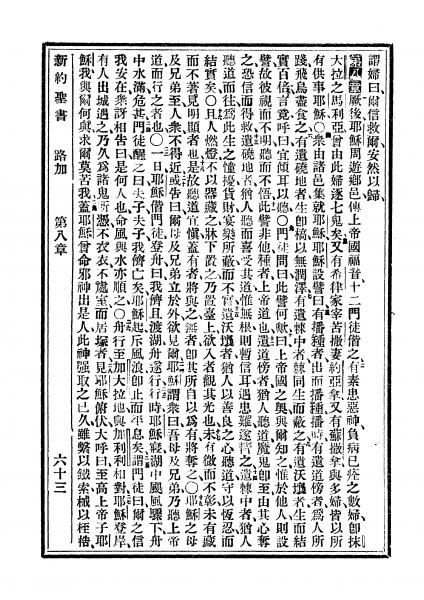 謂婦曰爾信救爾安然以歸
第八章厥後耶穌周遊鄉邑傳上帝國福音十二門徒偕之有素患惡神負病已痊之數婦卽抹
大拉之馬利亞曾由此婦逐七鬼矣又有希律家宰苦撒妻約亞拿又有蘇撒拿與多婦皆以所
有供事耶穌○衆由諸邑集就耶穌耶穌設譬曰有播種者出而播種播時有遺道傍者爲人所
踐飛鳥盡食之有遺磽地者生卽槁以無潤澤有遺棘中者棘同生而蔽之有遺沃壤者生而結
實百倍言竟呼曰宜傾耳以聽○門徒問曰此譬何歟曰上帝國之奧與爾知之惟於他人則設
譬故彼視而不明聽而不悟此譬非他種者上帝道也遺道傍者猶人聽道魔鬼卽至由其心奪
之恐信而得救遺磽地者猶人聽而喜受其道惟無根則暫信耳遇患難遂背之遺棘中者猶人
聽道而往爲此生之憧擾貨財宴樂所蔽而不實遺沃壤者猶人以善良之心聽道守以恆忍而
結實矣○且人燃燈不以器藏之牀下置之乃置臺上欲入者觀其光也未有微而不彰未有藏
而不著見明顯者也是故聽道宜愼蓋有者將與之無者卽其所自以爲有將奪之○耶穌之母
及兄弟至人衆不得近或告曰爾母及兄弟立於外欲見爾耶穌謂衆曰吾母及兄弟乃聽上帝
道而行之者也○一日耶穌偕門徒登舟曰我儕且渡湖舟遂行行時耶穌寢湖中颶風驟下舟
中水滿危甚門徒醒之曰夫子夫子我儕亡矣耶穌起斥風浪卽止而平息矣謂門徒曰爾之信
我安在衆訝相告曰是何人也命風與水亦順之○舟行至加大拉地與加利利相對耶穌登岸
有人出城遇之乃久爲諸鬼所憑不衣衣不處室而居塚者見耶穌俯伏大呼曰至高上帝子耶
穌我與爾何與求爾莫苦我蓋耶穌曾命邪神出是人此神強取之已久雖繫以鐵索械以桎梏
新約聖書 路加 第八章 六十三